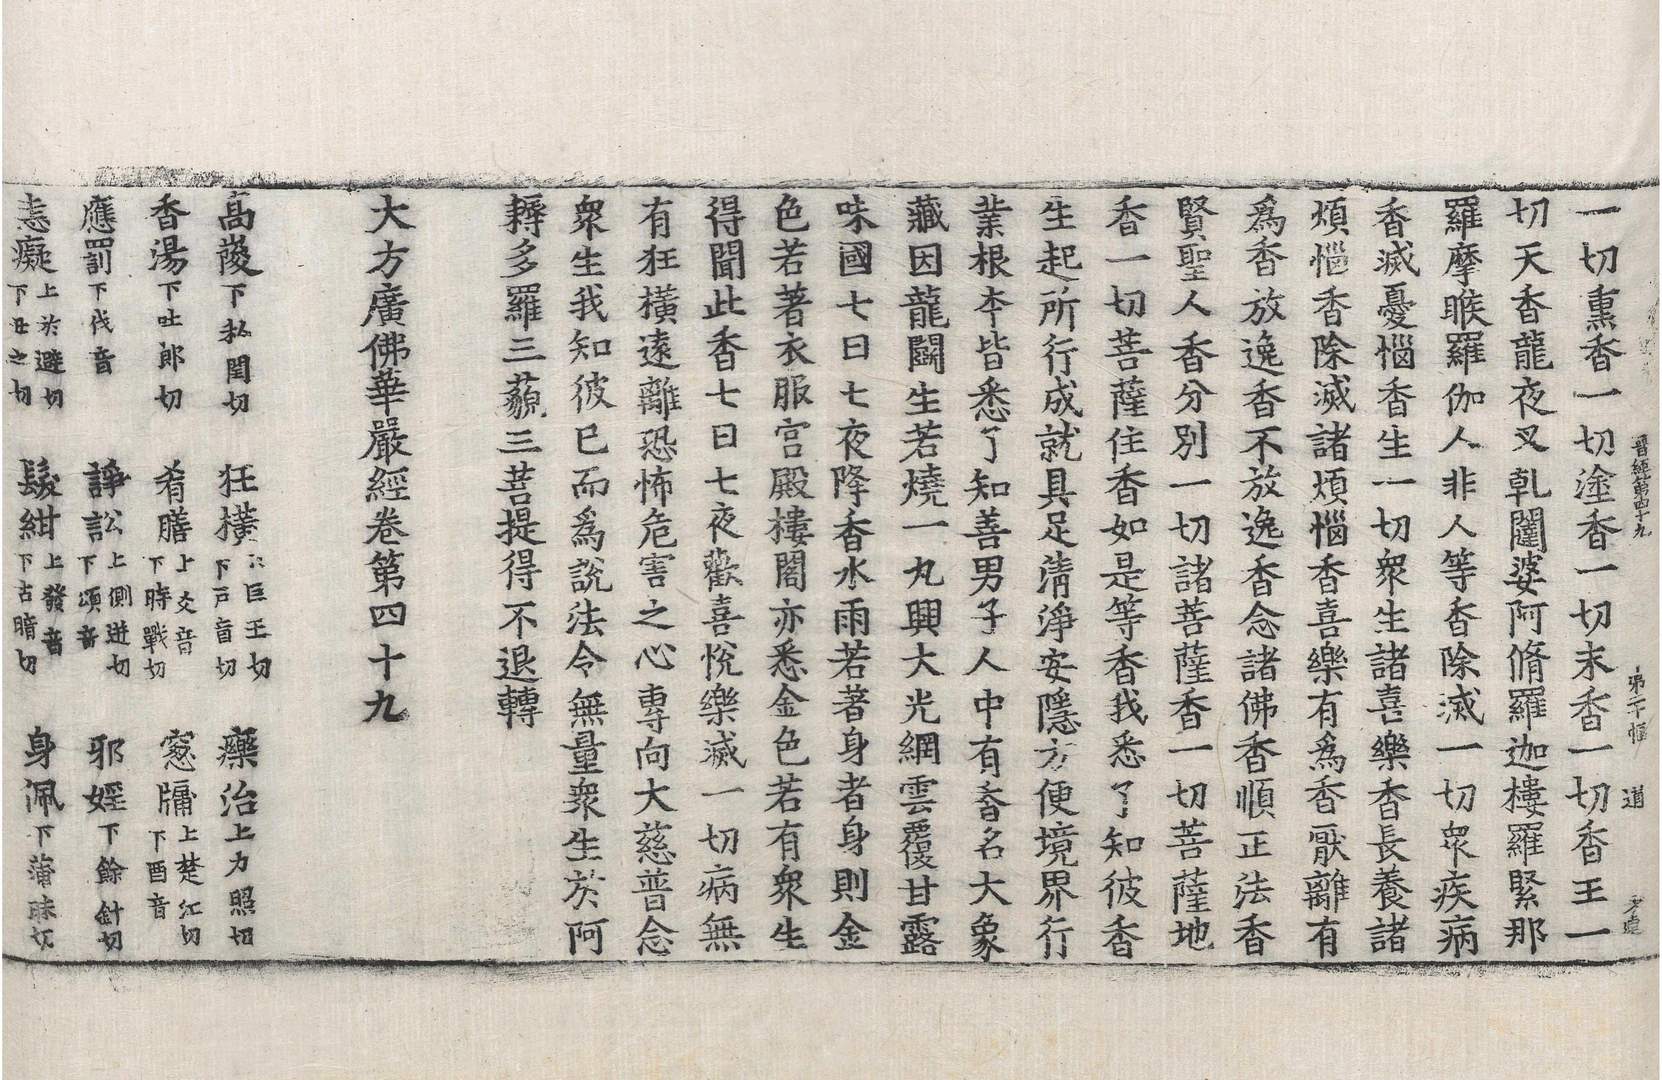 晉經第四十九 道
一切熏香一切塗香一切末香一切香王一
切天香龍夜叉乹闥婆阿脩羅迦樓羅緊那
羅摩睺羅伽人非人等香除滅一切衆疾病
香滅憂惱香生一切衆生諸喜樂香長養諸
煩惱香除滅諸煩惱香喜樂有爲香猒離有
爲香放逸香不放逸香念諸佛香順正法香
賢聖人香分別一切諸菩薩香一切菩薩地
香一切菩薩住香如是等香我悉了知彼香
生起所行成就具足清淨安隱方便境界行
業根本皆悉了知善男子人中有香名大象
藏因龍鬪生若燒一丸興大光網雲覆甘露
味國七日七夜降香水雨若著身者身則金
色若著衣服宮殿樓閣亦悉金色若有衆生
得聞此香七日七夜歡喜悅樂滅一切病無
有狂橫遠離恐怖危害之心專向大慈普念
衆生我知彼已而爲說法令無量衆生於阿
耨多羅三藐三菩提得不退轉
大方廣佛華嚴經卷第四十九
高䧺下私閏切 狂橫上巨王切下戸盲切 藥治上力照切
香湯下吐郎切 肴膳上爻音下時戰切 窓牖上楚江切下酉音
應罰下伐音 諍訟上側迸切下頌音 邪婬下餘針切
恚癡上於避切下丑之切 髮紺上發音下古暗切 身佩下蒲昧切